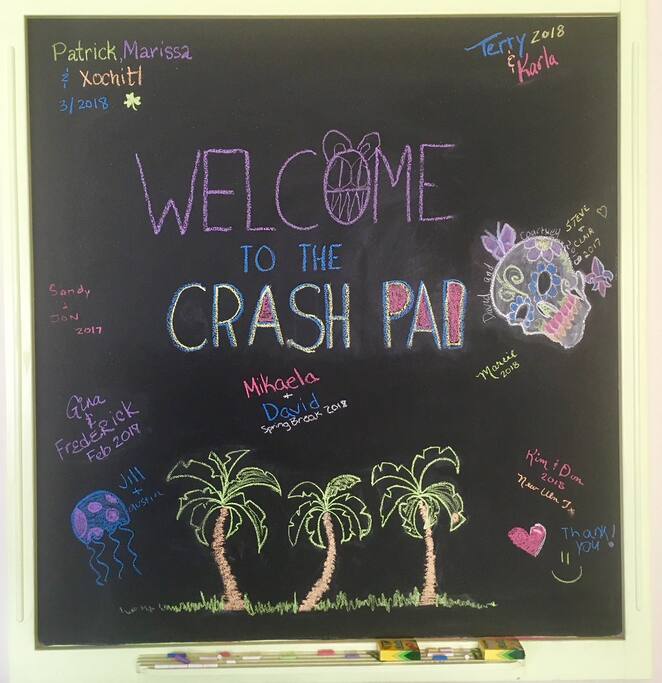 Patrick, Marissa
& Xochitl
3/2018
Terry 2018
&
Karla
WELCOME
TO THE
CRASH PAD
David and Courtney
STEVE
+
CLAIR
2017
Sandy
&
JON
2017
Marcie
2018
Mikaela
+
David
Spring Break 2018
Gina
&
FredERICK
Feb 2019
Jill
+
Austin
Kim & Don
2018
New Ulm
Thank
you!